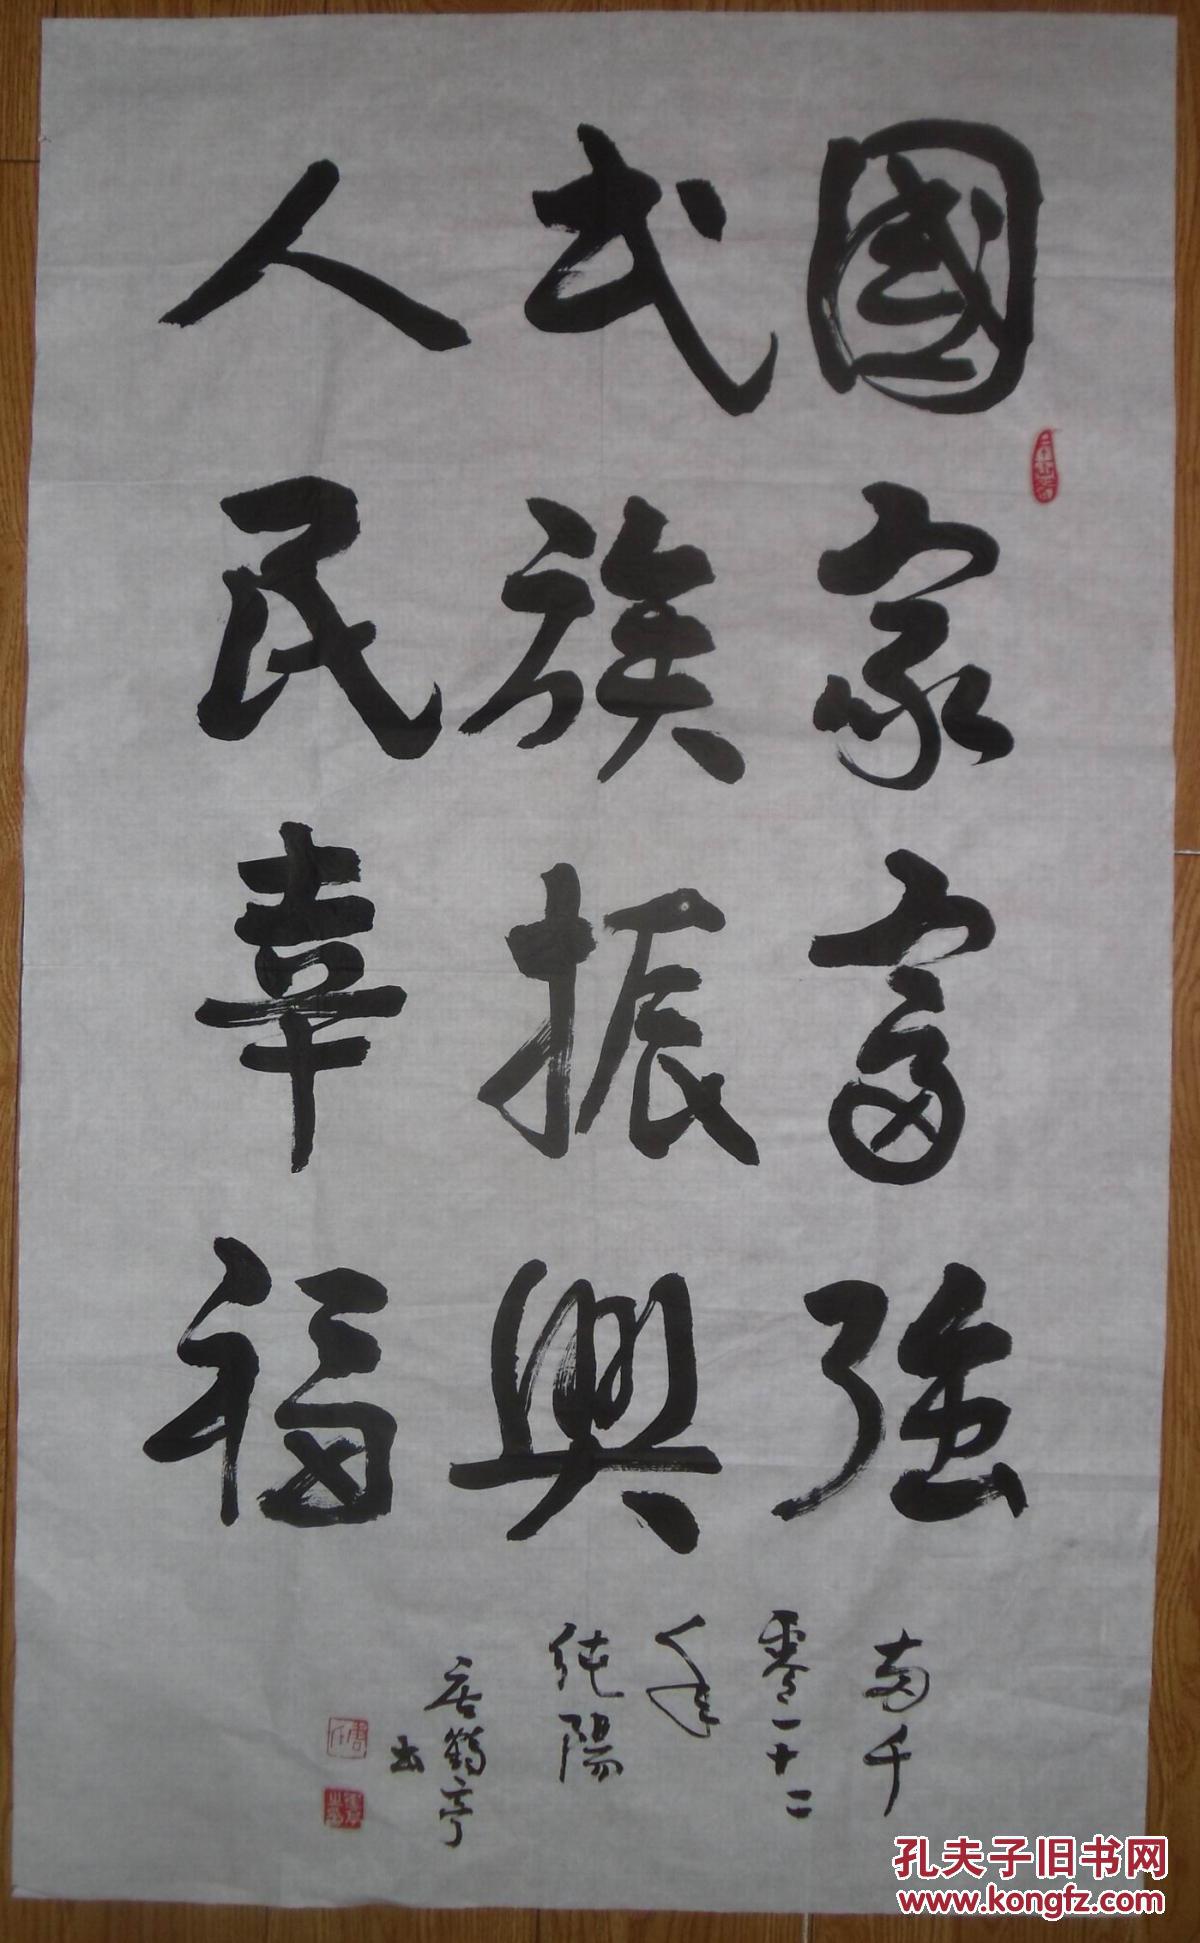 國家富強
民族振興
人民幸福
两千
零一十二
年
純陽
唐鶴亭
書
孔夫子旧书网
www.kongfz.com